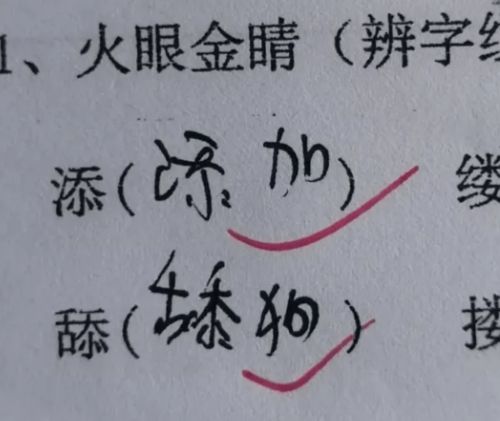 1、火眼金睛（辨字组
添(添加) 缕
舔(舔狗) 搂